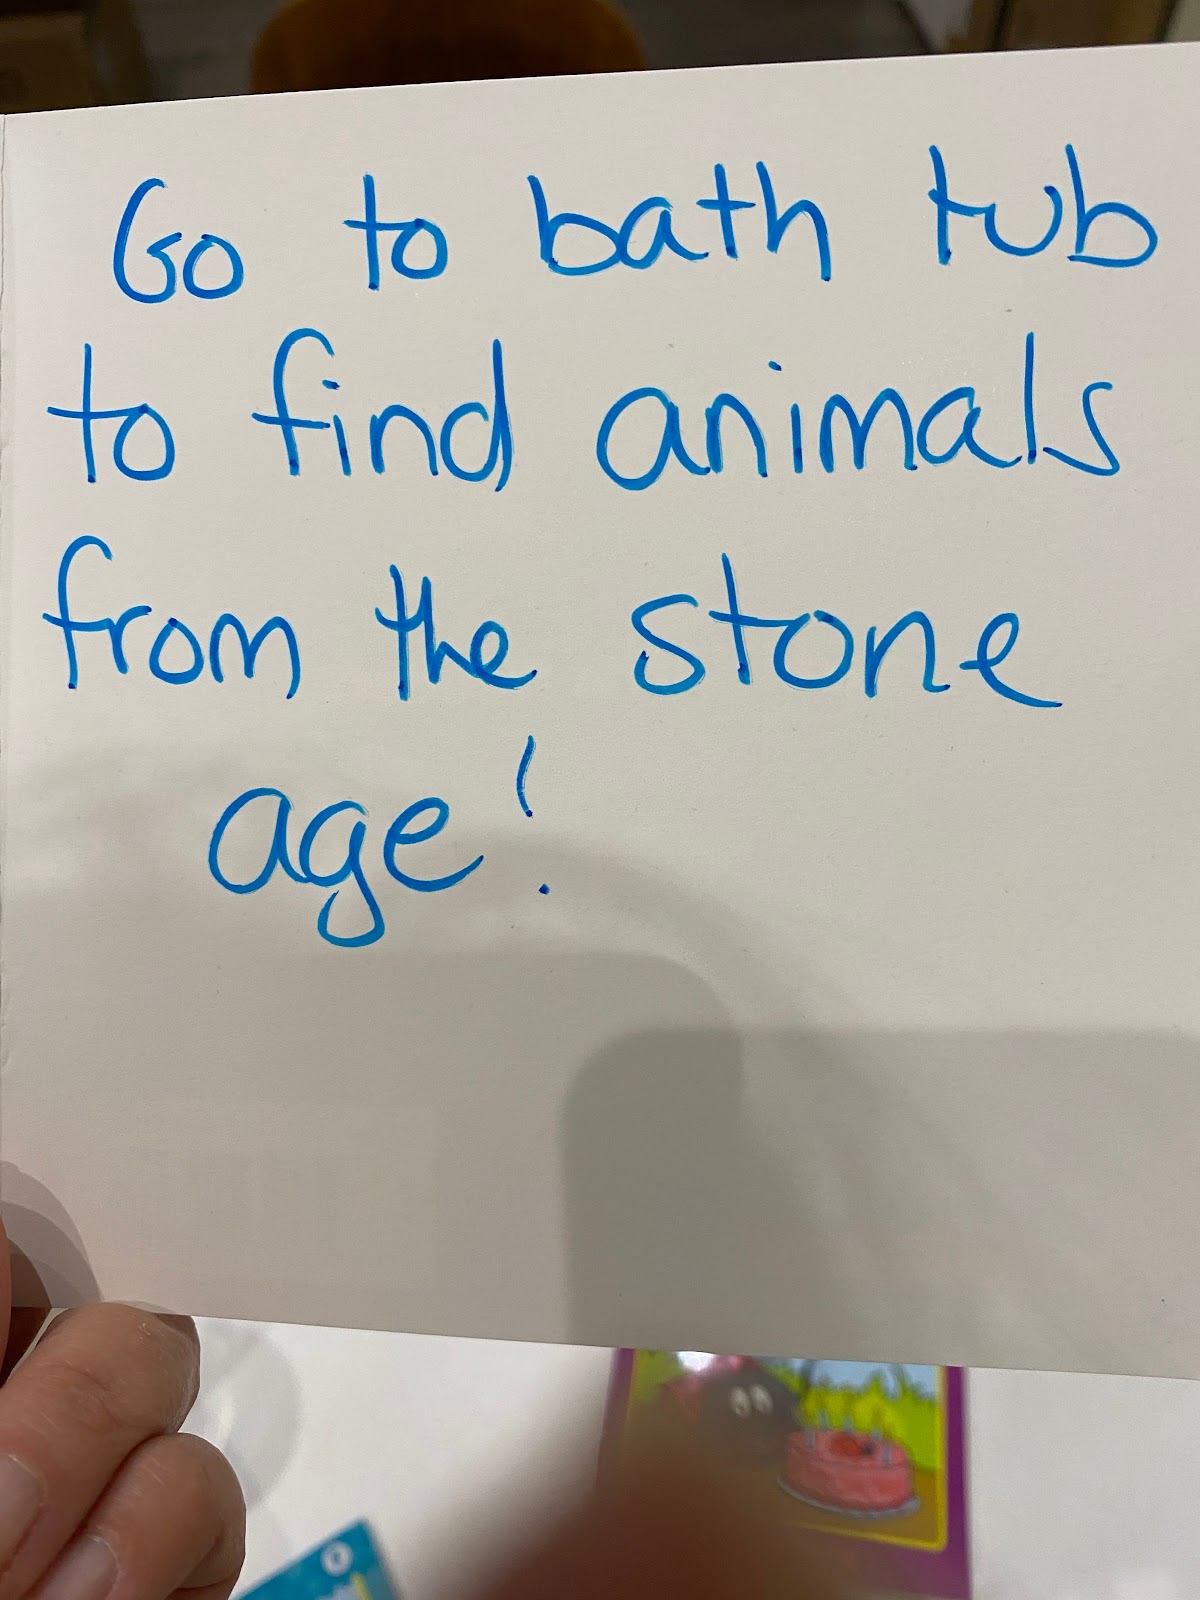 Go to bath tub
to find animals
from the stone
age!